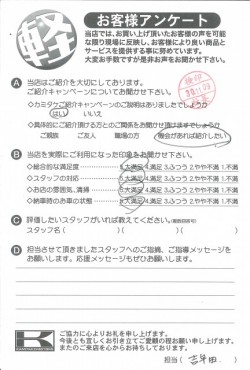 軽
お客様アンケート
当店では、お買い上げ頂いたお客様の声を可能
な限り現場に反映し、お客様により良い商品と
サービスを提供する事に努めています。
大変お手数ですが是非お声をお聞かせ下さい。
A 当店はご紹介を大切にしております。
ご紹介キャンペーンについてお聞かせ下さい。
・カミタケご紹介キャンペーンのご説明はありましたでしょうか
はい いいえ
・具体的にご紹介頂ける方とのご関係をお聞かせ頂けますでしょうか
ご親族 ご友人 職場の方 機会があれば紹介したい
B 当店を実際にご利用になった印象をお聞かせ下さい。
・総合的な満足度 5.大満足 4.満足 3.ふつう 2.やや不満 1.不満
・スタッフの対応 5.大満足 4.満足 3.ふつう 2.やや不満 1.不満
・お店の雰囲気、清掃 5.大満足 4.満足 3.ふつう 2.やや不満 1.不満
・納車時のお車の状態 5.大満足 4.満足 3.ふつう 2.やや不満 1.不満
C 評価したいスタッフがいれば教えてください。
スタッフ名( )( )
D 担当させて頂きましたスタッフへのご指摘、ご指導メッセージを
お願いします。応援メッセージもぜひお願いします。
K
ご協力に心よりお礼を申し上げます。
今後とも宜しくお引き立てご愛顧の程お願い申し上げます。
またのご来店を心からお待ちしております。
担当( 吉年田 )